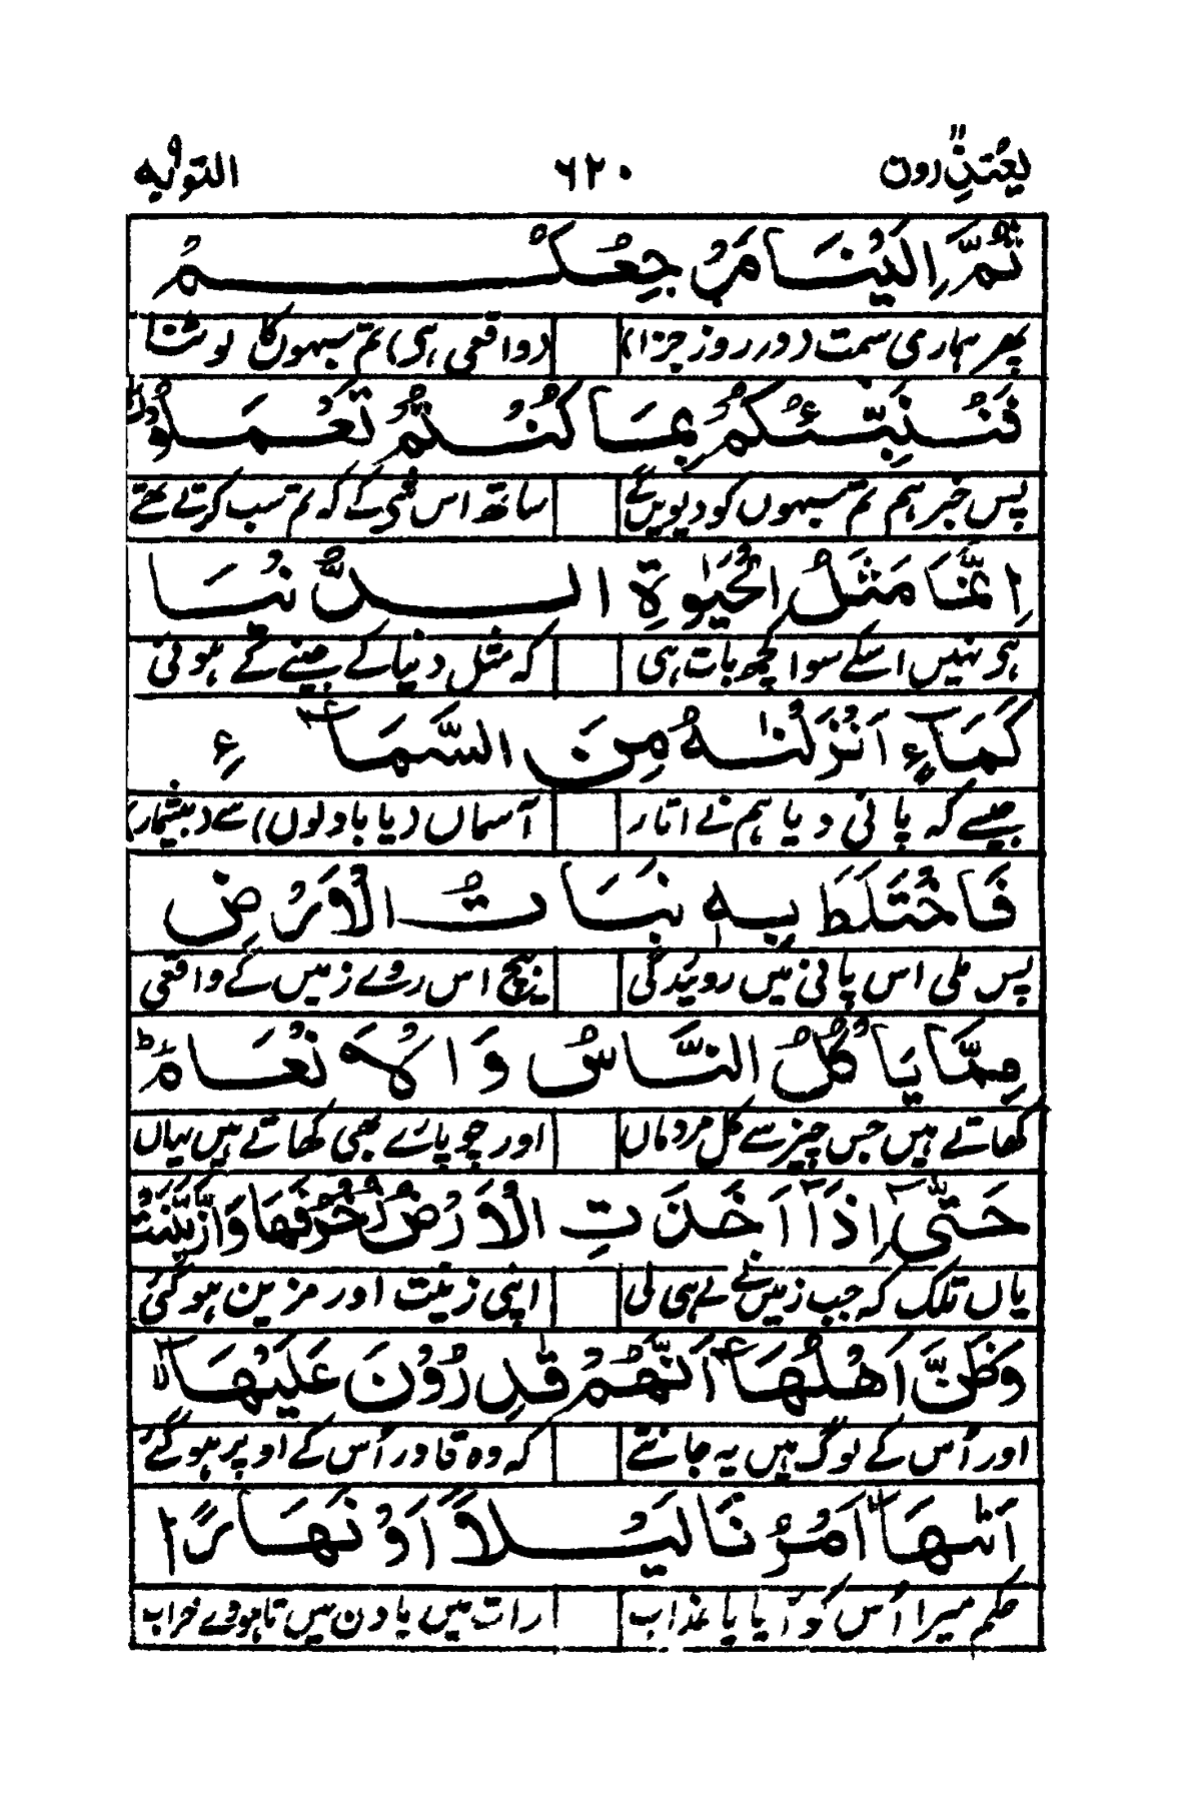 یعتذرون ۱۱ ۶۲۰ التوبه ۹
ثُمَّ اِلَیْنَا مَرْجِعُکُمْ
پھر ہماری سمت (در روز جزا) (واقعی ہی) تم سبہوں کا لوٹنا
فَنُنَبِّئُکُمْ بِمَا کُنْتُمْ تَعْمَلُوْنَ
پس خبر ہم تم سبہوں کو دیویں گے ساتھ اس شی کے کہ تم سب کرتے تھے
اِنَّمَا مَثَلُ الْحَیٰوةِ الدُّنْیَا
ہی نہیں اسکے سوا کچھ بات ہی کہ مثل دنیا کے جینے کے ہوئی
کَمَآءٍ اَنْزَلْنٰهُ مِنَ السَّمَآءِ
جیسے کہ پانی دیا ہم نے اتار آسماں (یا بادلوں) سے (بیشمار)
فَاخْتَلَطَ بِهٖ نَبَاتُ الْاَرْضِ
پس ملی اس پانی میں روئیدگی بیچ اس روے زمیں کے واقعی
مِمَّا یَاْکُلُ النَّاسُ وَالْاَنْعَامُ ط
کھاتے ہیں جس چیز سے کل مردماں اور چوپائے بھی کھاتے ہیں یہاں
حَتّٰیٓ اِذَآ اَخَذَتِ الْاَرْضُ زُخْرُفَهَا وَازَّیَّنَتْ
یاں تلک کہ جب زمیں نے لے ہی لی اپنی زینت اور مزین ہو گئی
وَظَنَّ اَهْلُهَآ اَنَّهُمْ قٰدِرُوْنَ عَلَیْهَآ لا
اور اُس کے لوگ ہیں یہ جانتے کہ وہ قادر اُس کے اوپر ہو گئے
اَتٰىهَآ اَمْرُنَا لَیْلًا اَوْ نَهَارًا
حکم میرا اُس کو آیا یا عذاب رات میں یا دن میں تا ہووے خراب